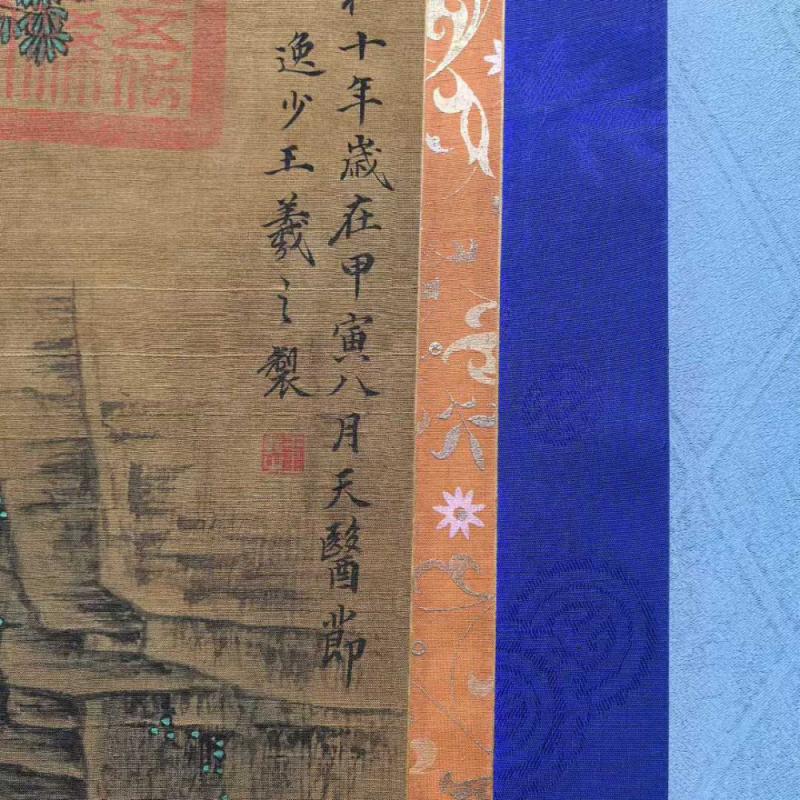 十年歲在甲寅八月天醫節
逸少王羲之製